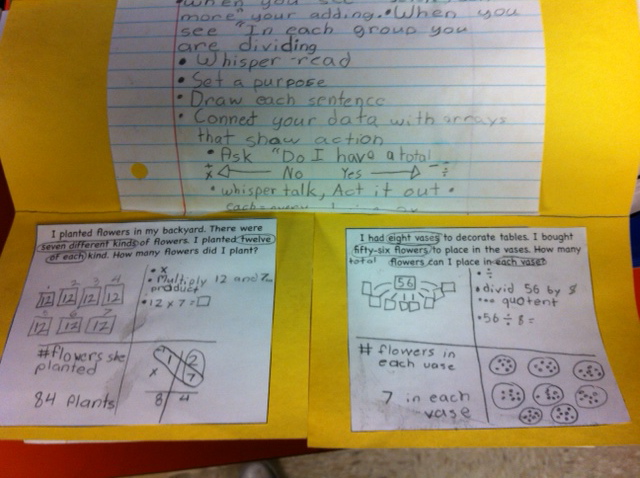 more" your adding. • When you
see "In each group you
are dividing
• Whisper read
• Set a purpose
• Draw each sentence
• Connet your data with arrays
that show action
• Ask "Do I have a total
+ x No Yes - ÷
• whisper talk, Act it out •
I planted flowers in my backyard. There were
seven different kinds of flowers. I planted twelve
of each kind. How many flowers did I plant?
1 2 3 4
12 12 12 12
5 6 7
12 12 12
• x
• Multiply 12 and 7
product
• 12 x 7 =
#flowers she
planted
84 Plants
12
x 7
84
I had eight vases to decorate tables. I bought
fifty-six flowers to place in the vases. How many
total flowers can I place in each vase?
56
• ÷
• divid 56 by 8
quotent
• 56 ÷ 8 =
# flowers in
each vase
7 in each
vase